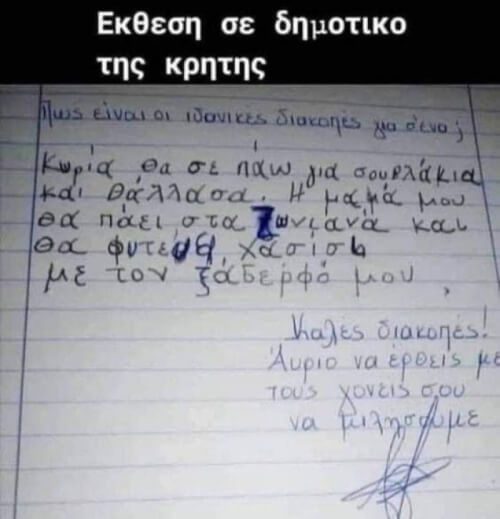 Εκθεση σε δημοτικο
της κρητης
Πως είναι οι ιδανικές διακοπές για σένα;
Κυρία θα σε πάω για σουβλάκια
και θάλλασα. Η μαμά μου
θα πάει στα Ζωνιανά και
θα φυτεψει χασίσι
με τον ξάδερφό μου
Καλές διακοπές!
Αυριο να έρθεις με
τους γονείς σου
να μιλησουμε